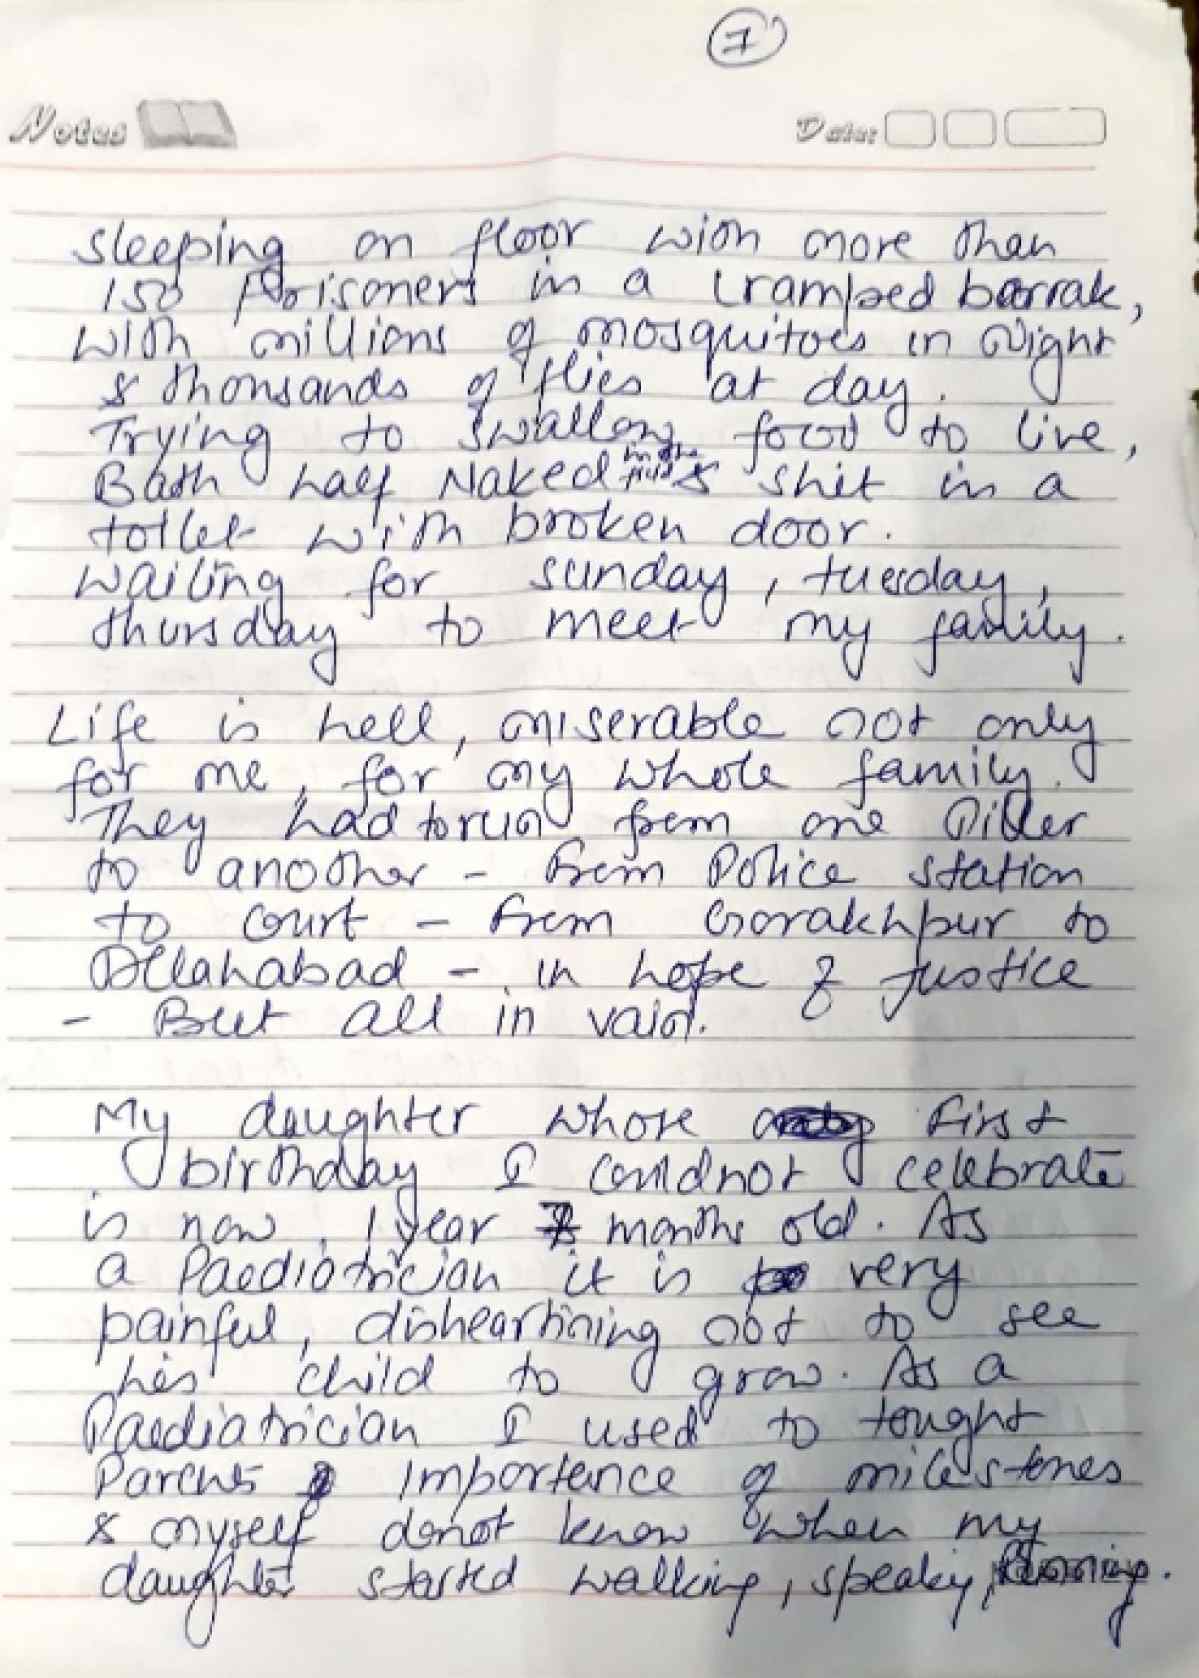 7
Notes
Date:
Sleeping on floor with more than
150 Prisoners in a cramped barrak,
with millions of mosquitoes in Night
& thousands of flies at day.
Trying to swallow food to live,
Bath half Naked in the field & shit in a
toilet with broken door.
Waiting for sunday, tuesday,
thursday to meet my family.
Life is hell, miserable not only
for me, for my whole family.
They had to run from one Piller
to another - from Police station
to court - from Gorakhpur to
Allahabad - in hope of Justice
- But all in vain.
My daughter whose first
birthday I couldnot celebrate
is now 1 year 7 months old. As
a Paediatrician it is very
painful, disheartining not to see
his child to grow. As a
Paediatrician I used to tought
Parents importance of milestones
& myself donot know when my
daughter started walking, speaking, running.